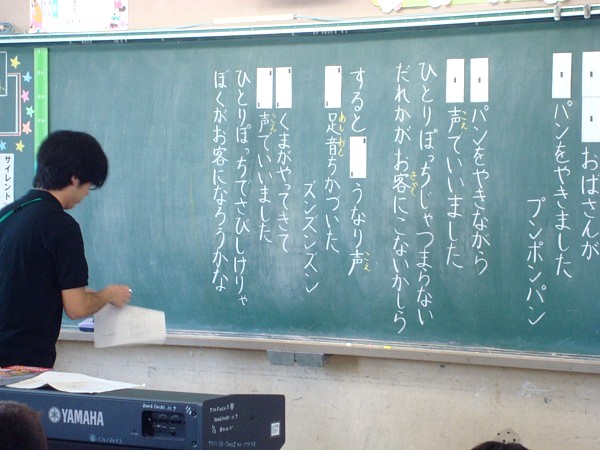 おばさんが
パンをやきました
プンポンパン
パンをやきながら
声でいいました
こえ
ひとりぼっちじゃつまらない
だれかがお客にこないかしら
きゃく
すると うなり声
こえ
足音ちかづいた
あしおと
ズンズンズン
くまがやってきて
声でいいました
こえ
ひとりぼっちでさびしけりゃ
ぼくがお客になろうかな
サイレント
YAMAHA